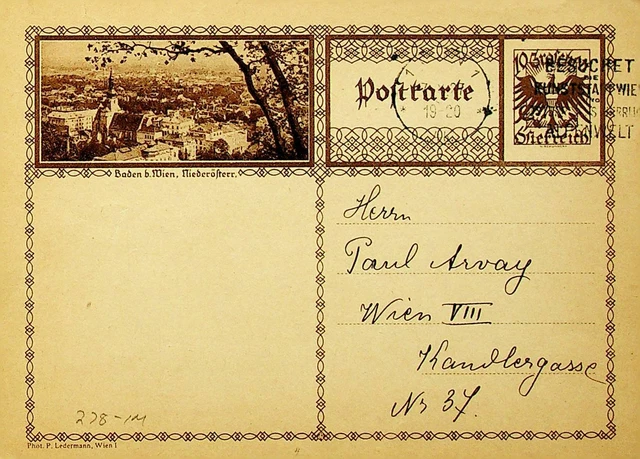 Postkarte
19-20
10 Groschen
Österreich
BESUCHET
DIE
KUNSTSTADT WIE
Baden b. Wien, Niederösterr.
Herrn
Paul Arvay
Wien VIII
Kandlergasse
Nr 37.
278-1M
Phot. P. Ledermann, Wien I